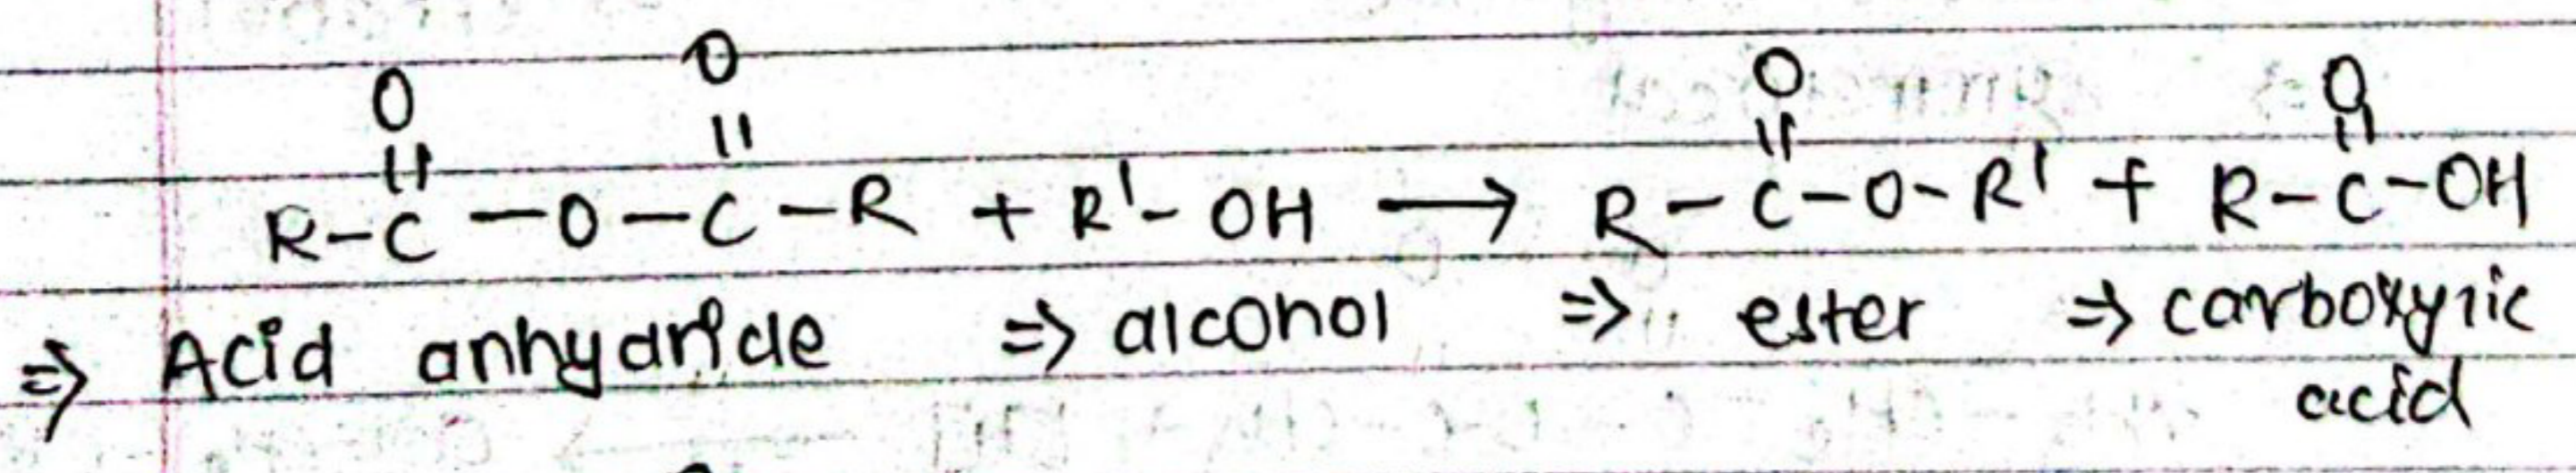 O O O O
|| || || ||
R-C-O-C-R + R'-OH → R-C-O-R' + R-C-OH
⇒ Acid anhydride ⇒ alcohol ⇒ ester ⇒ carboxylic
acid